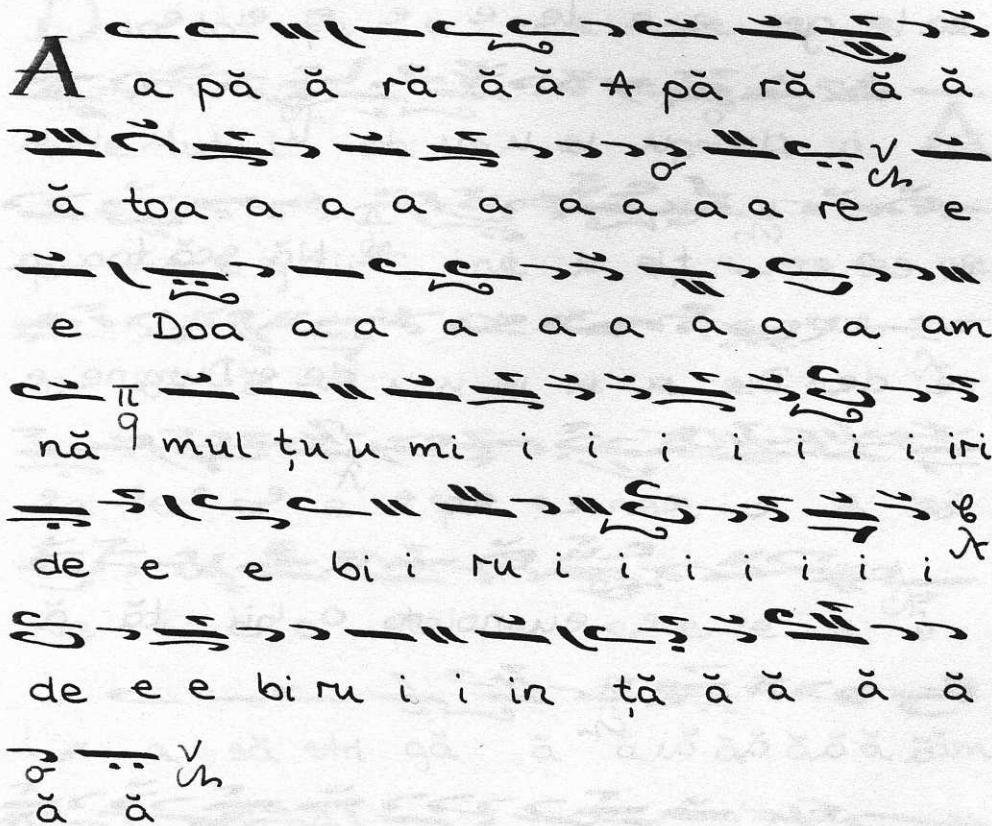 A a pă ă ră ă ă A pă ră ă ă
ă toa a a a a a a a a re e
e Doa a a a a a a a a am
nă mul țu u mi i i i i i i i iri
de e e bi i ru i i i i i i i
de e e bi ru i i in ță ă ă ă ă
ă ă